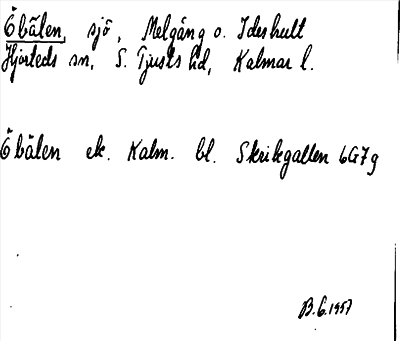 Öbålen, sjö, Melgång o. Ideshult
Hjorteds sn, S. Tjusts hd, Kalmar l.
Öbålen ek. Kalm. bl. Skrikegallen 6G7g
B.G. 1957